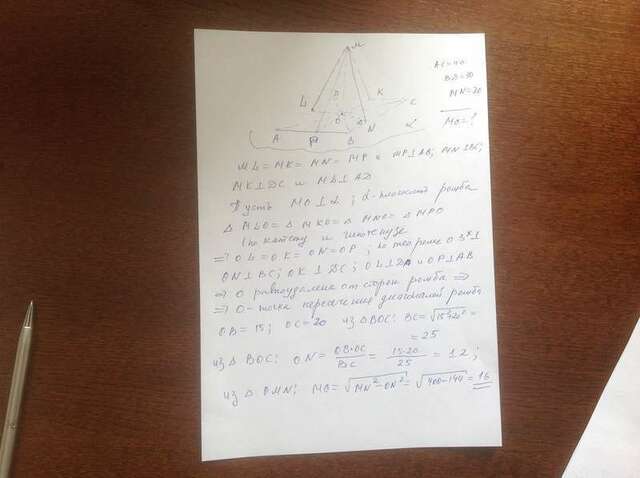 M
K
D
L
C
O
N
A
P
B
α
AC=40
BD=30
MN=20
MO=?
ML=MK=MN=MP и MP⊥AB; MN⊥BC;
MK⊥DC и ML⊥AD
Пусть MO⊥α; α-плоскость ромба
△MLO=△MKO=△MNO=△MPO
(по катету и гипотенузе
⇒ OL=OK=ON=OP; по теореме о 3х⊥
ON⊥BC; OK⊥DC; OL⊥DA и OP⊥AB
⇒ O равноудалена от сторон ромба ⇒
⇒ O-точка пересечения диагоналей ромба
OB=15; OC=20 из △BOC: BC=√15²+20²=
=25
из △BOC: ON=OB·OC/BC=15·20/25=12;
из △OMN: MO=√MN²-ON²=√400-144=16